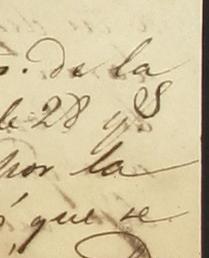 s. de la
de 28 y S
por la
ó, que se